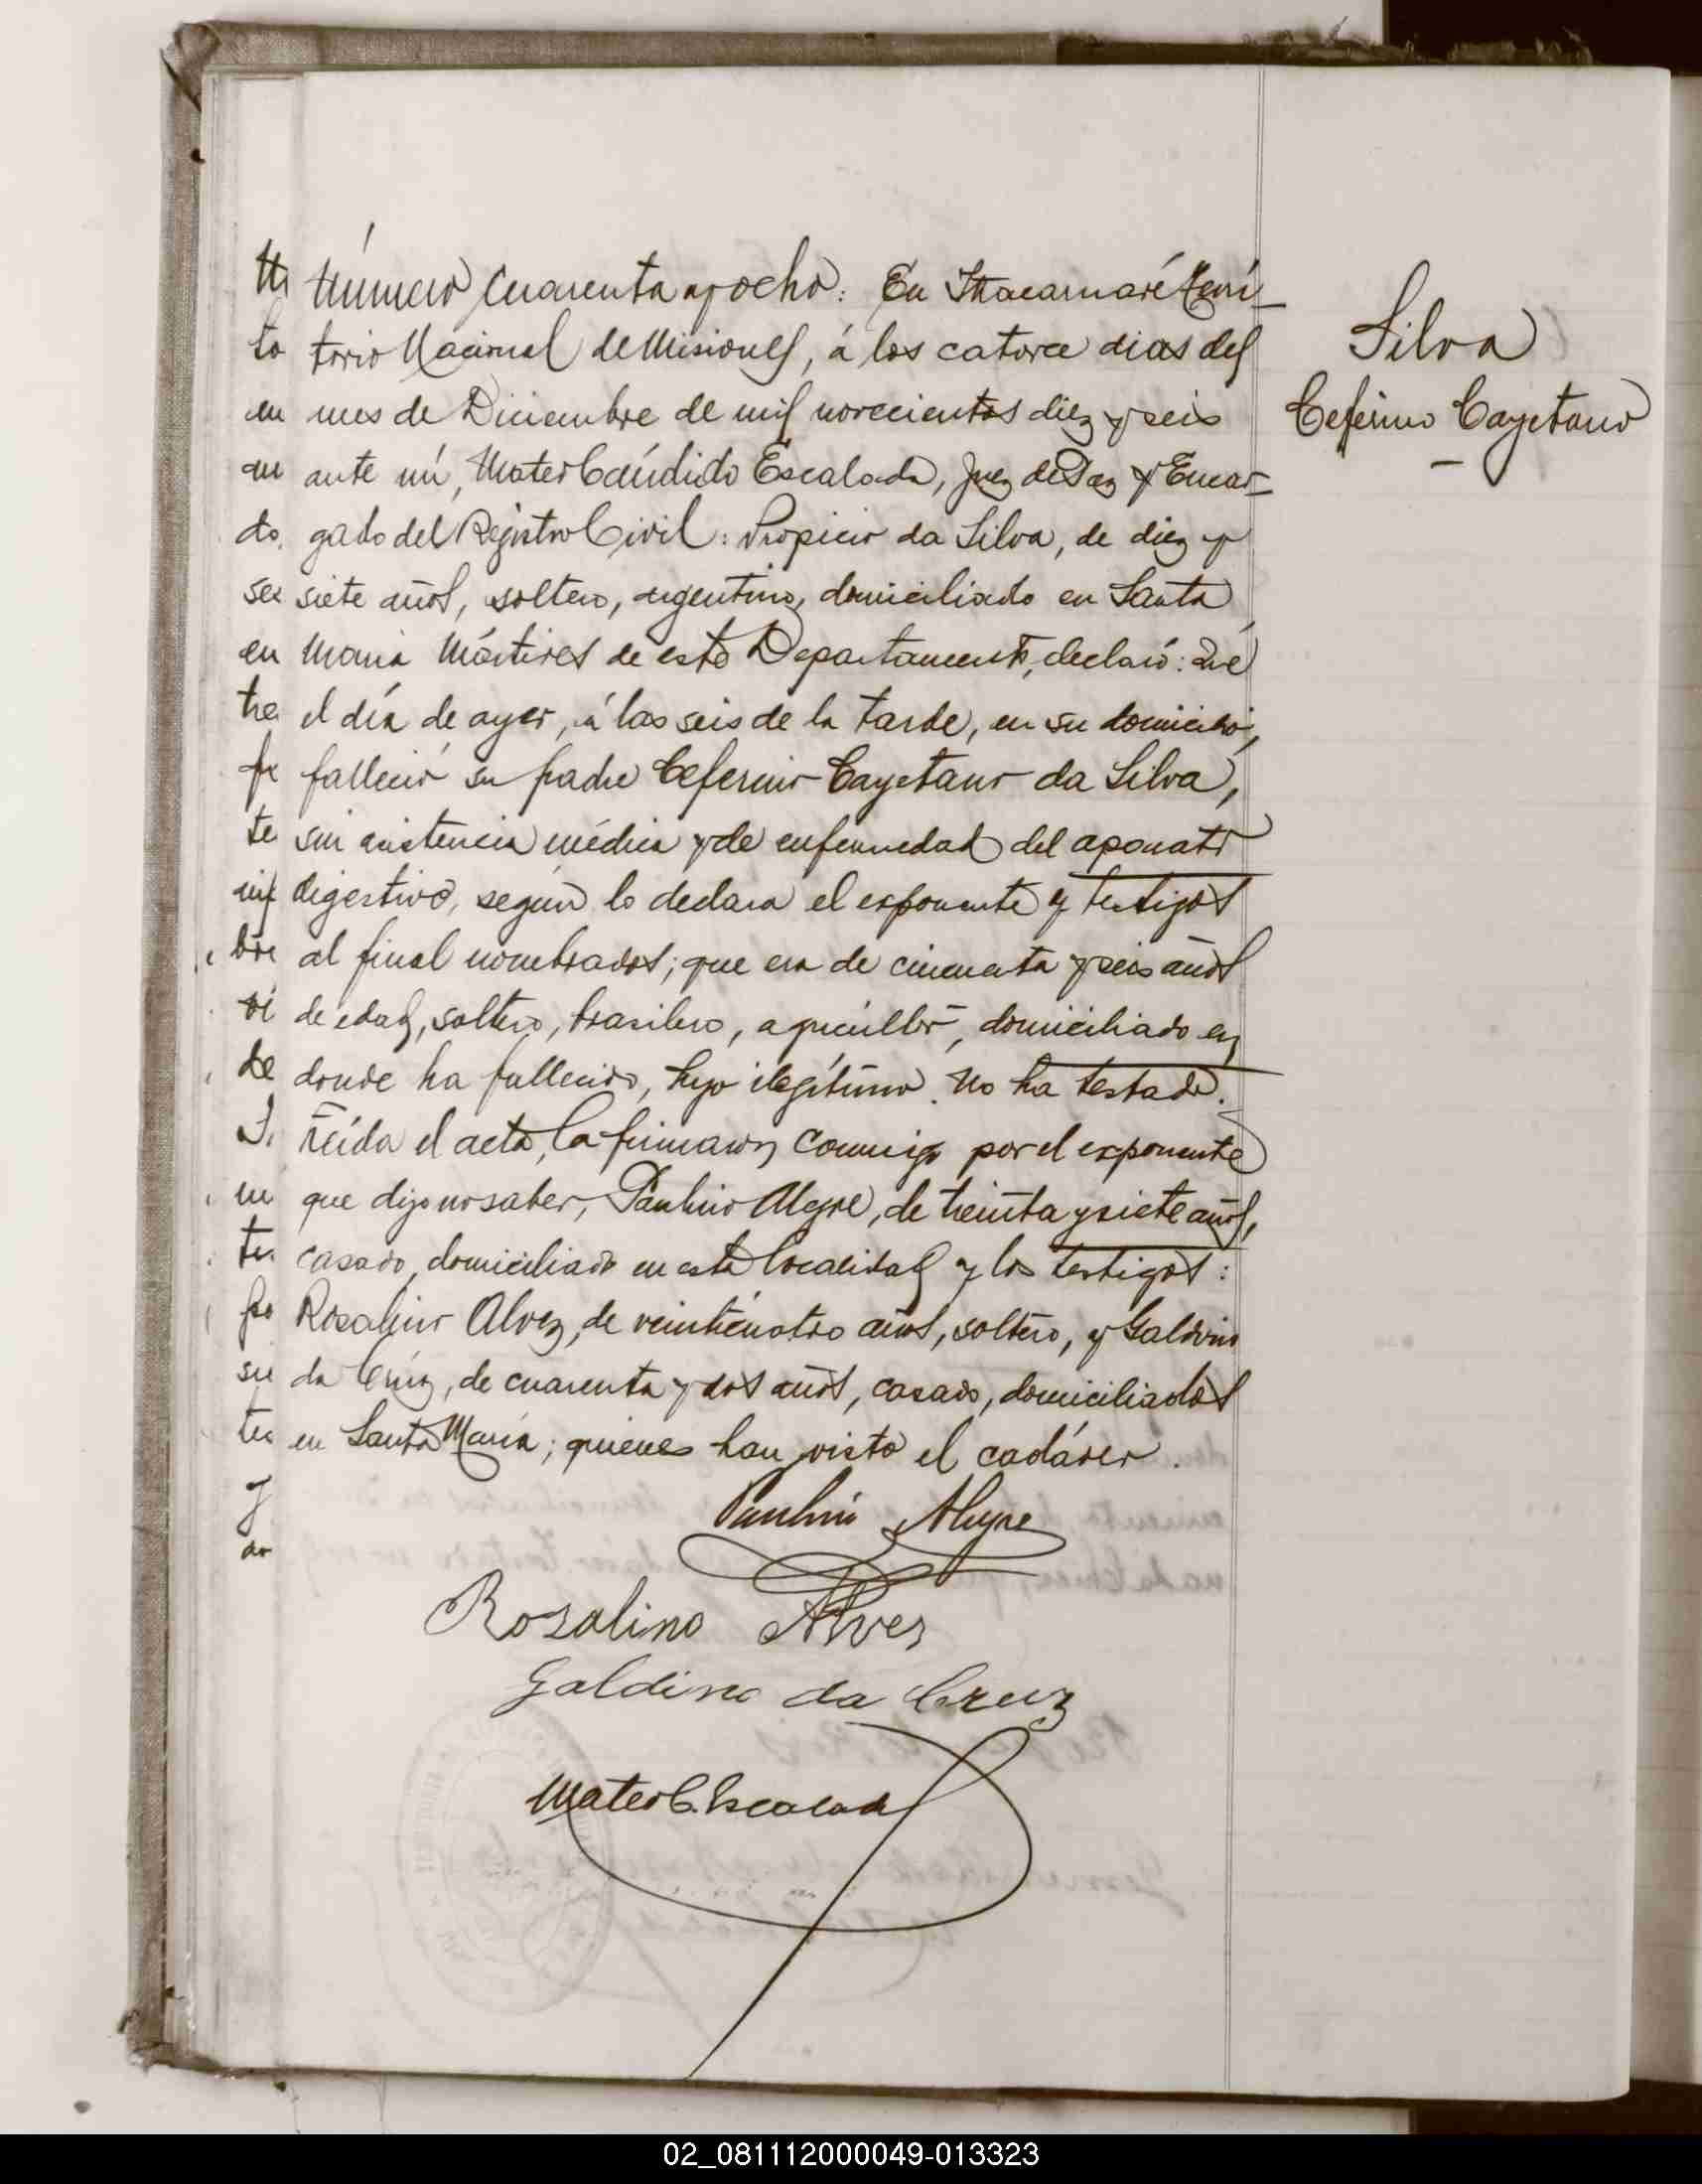 Número Cuarenta y ocho: En Itacaruaré Terri-
torio Nacional de Misiones, á los catorce dias del
mes de Diciembre de mil novecientos diez y seis
ante mí, Mateo Cándido Escalada, Juez de Paz y Encar-
gado del Registro Civil: Propicio da Silva, de diez y
siete años, soltero, argentino, domiciliado en Santa
Maria Mártires de este Departamento, declaró: Que
el día de ayer, á las seis de la tarde, en su domicilio,
falleció su padre Ceferino Cayetano da Silva,
sin asistencia médica y de enfermedad del aparato
digestivo, según lo declara el exponente y testigos
al final nombrados; que era de cincuenta y seis años
de edad, soltero, brasilero, agricultor, domiciliado en
donde ha fallecido, hijo ilegítimo. No ha testado.
Leída el acta, la firmaron conmigo por el exponente
que dijo no saber, Paulino Alegre, de treinta y siete años,
casado, domiciliado en esta localidad y los testigos:
Rosalino Alvez, de veinticuatro años, soltero, y Galdino
da Cruz, de cuarenta y dos años, casado, domiciliados
en Santa María; quienes han visto el cadáver.
Paulino Alegre
Rozalino Alves
Galdino da Cruz
Mateo C. Escalada
Silva
Ceferino Cayetano
02_081112000049-013323